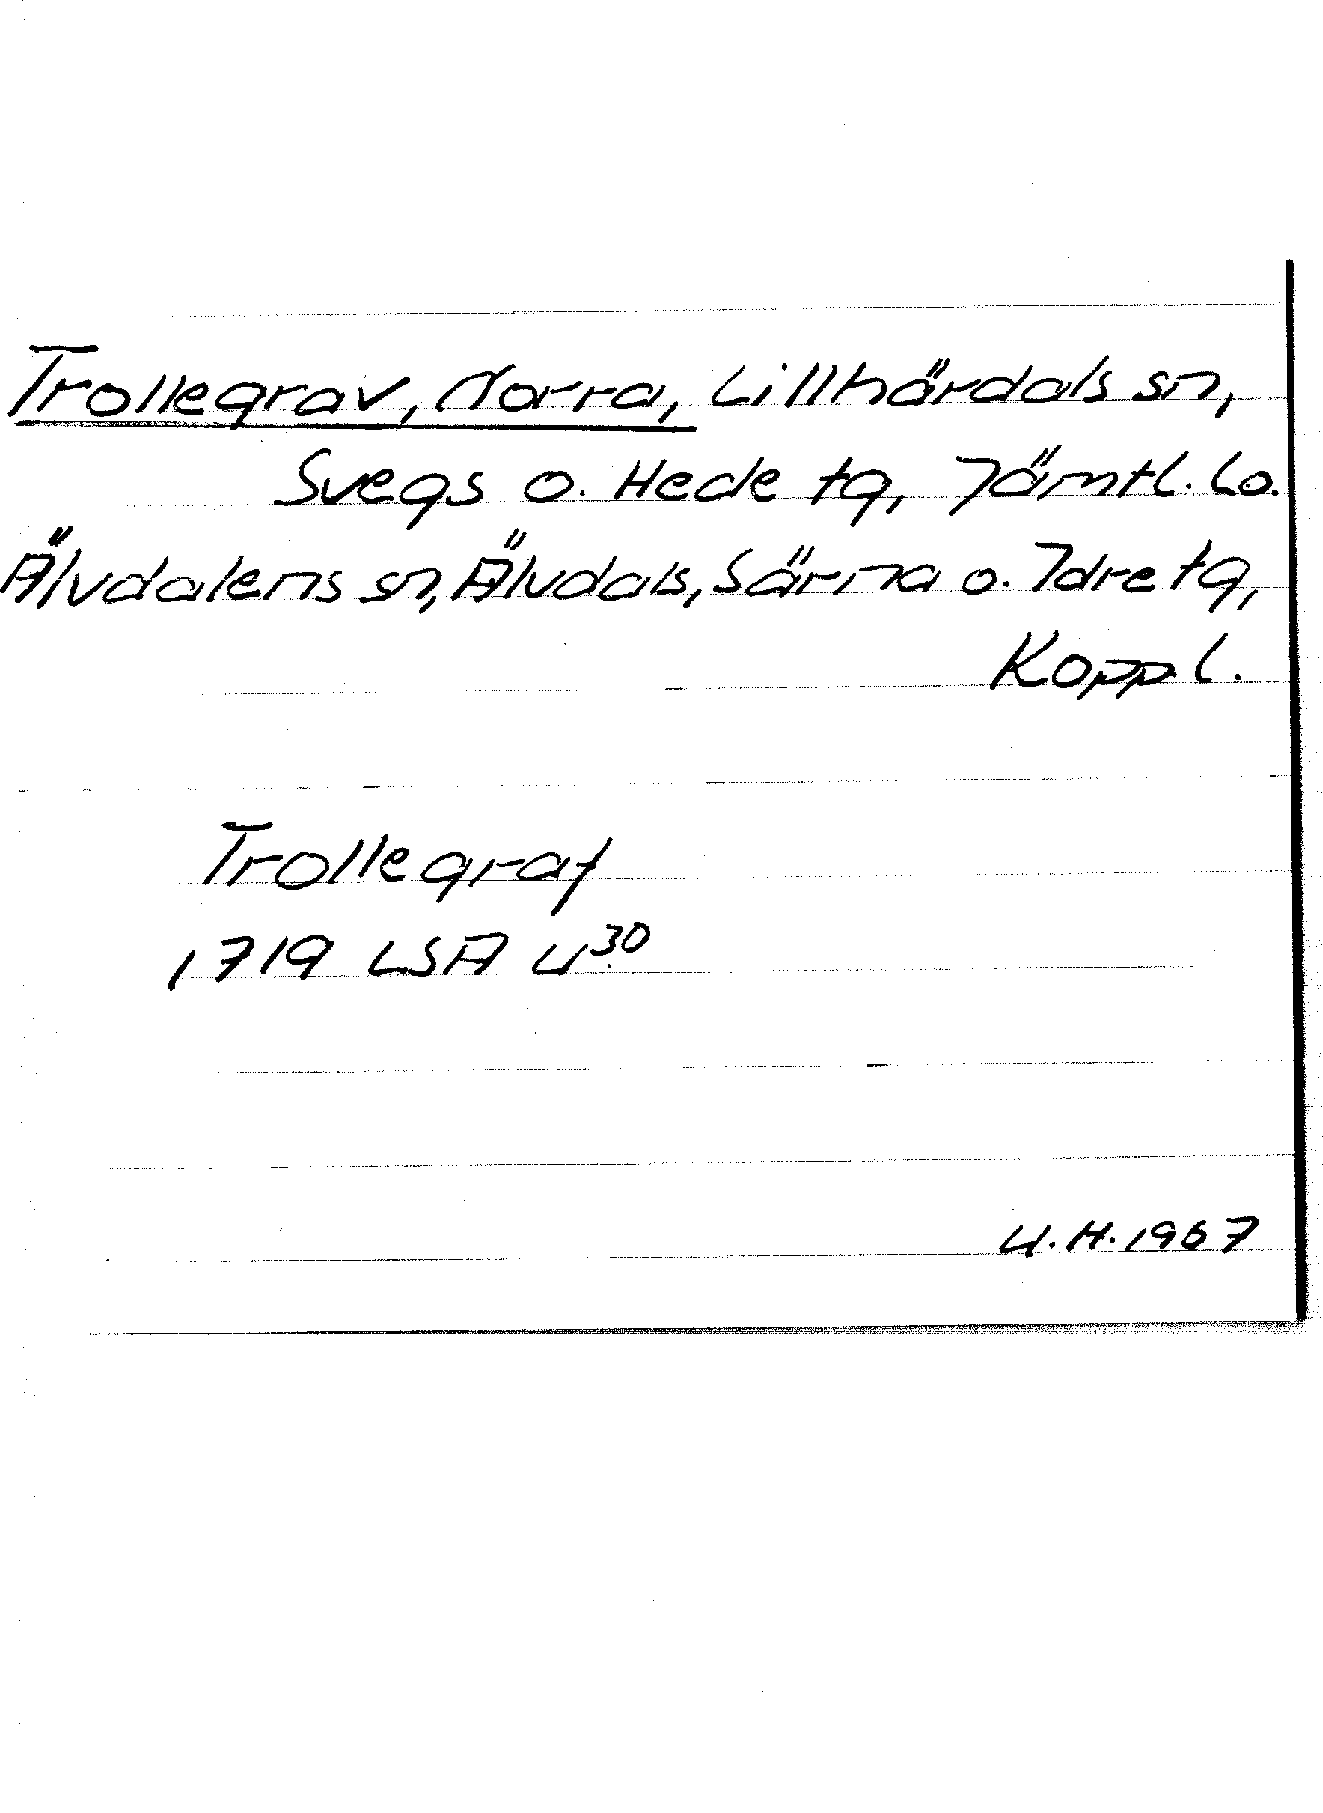 Trollegrav, Norra, Lillhärdals sn,
Svegs o. Hede tg, Jämtl. l o.
Älvdalens sn, Älvdals, Särna o. Idre tg,
Kopp l.
Trollegraf
1719 LSA U 30
U.H. 1967